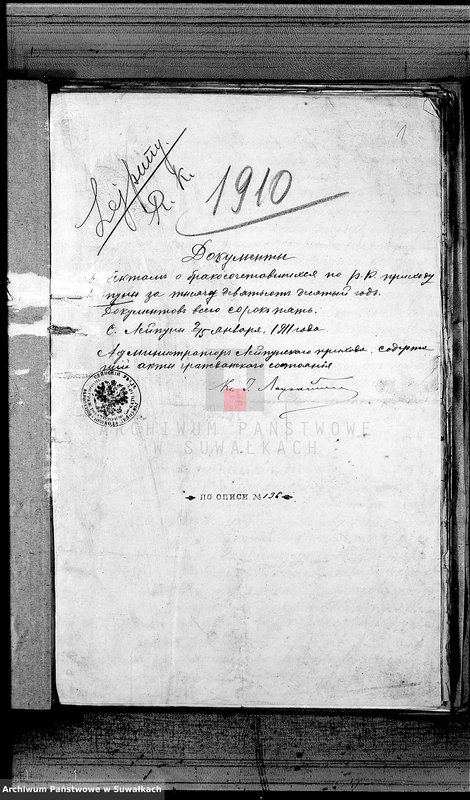 1
Lejpuny
R. K.
1910
Документы
актамъ о бракосочетавшихся по р. к. приходу
пуны за тысячу девятьсот десятый годъ.
Документовъ всего сорокъ пять.
С. Лейпуны 2/15 января, 1911 года
Администраторъ Лейпунскаго прихода, содержа
щий акты гражданского состояния
К. І.
ARCHIWUM PAŃSTWOWE
W SUWAŁKACH
ПО ОПИСИ № 136
Archiwum Państwowe w Suwałkach